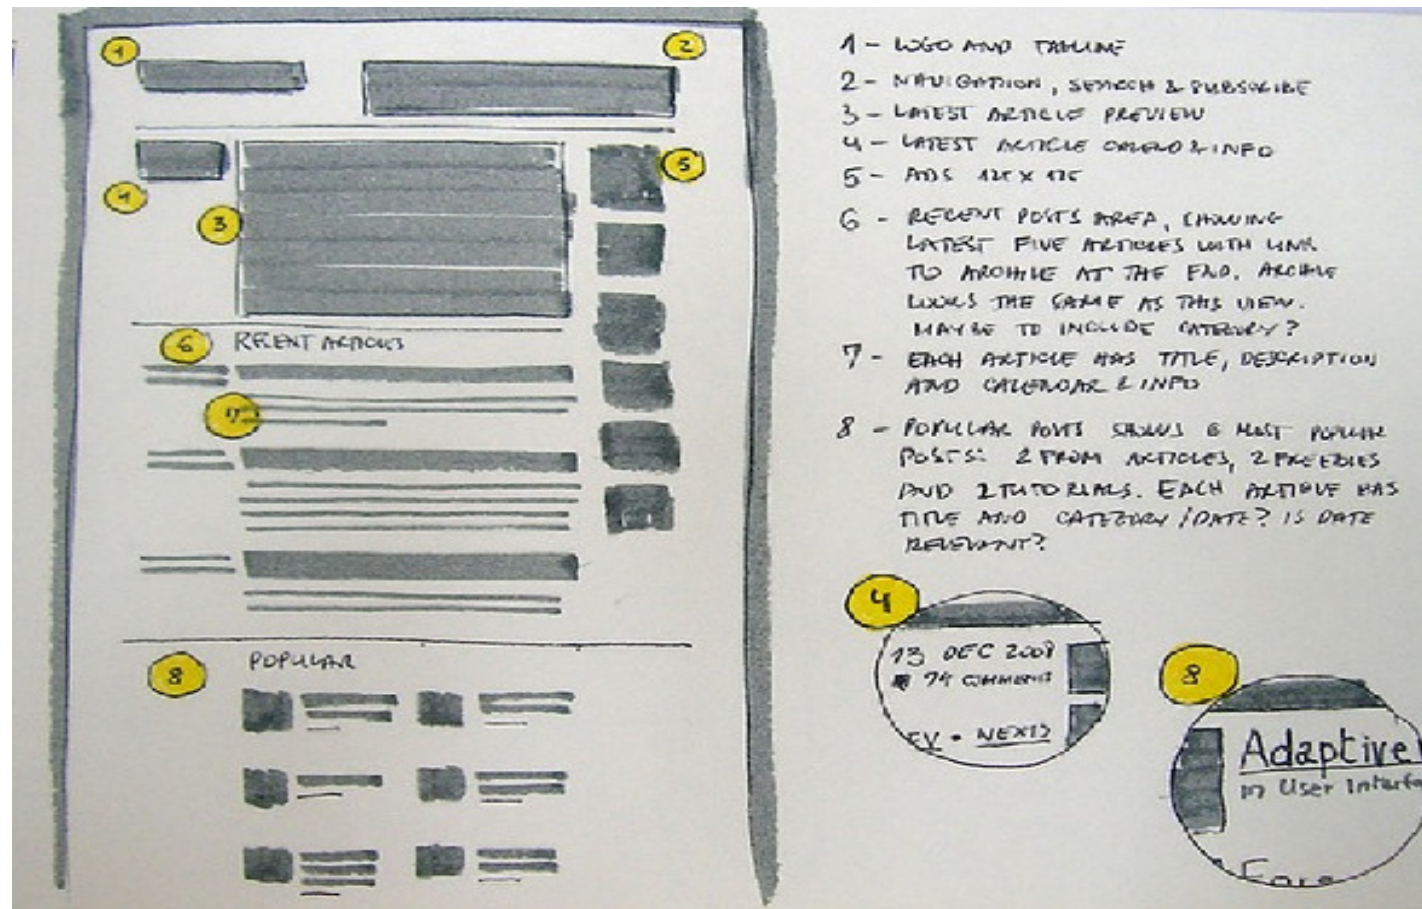 1
2
4
3
5
6
RECENT ARTICLES
7
8
POPULAR
1 - LOGO AND TAGLINE
2 - NAVIGATION, SEARCH & SUBSCRIBE
3 - LATEST ARTICLE PREVIEW
4 - LATEST ARTICLE CALEND & INFO
5 - ADS 125 X 125
6 - RECENT POSTS AREA, SHOWING
LATEST FIVE ARTICLES WITH LINK
TO ARCHIVE AT THE END. ARCHIVE
LOOKS THE SAME AS THIS VIEW.
MAYBE TO INCLUDE CATEGORY?
7 - EACH ARTICLE HAS TITLE, DESCRIPTION
AND CALENDAR & INFO
8 - POPULAR POSTS SHOWS 6 MOST POPULAR
POSTS: 2 FROM ARTICLES, 2 FREEBIES
AND 2 TUTORIALS. EACH ARTICLE HAS
TITLE AND CATEGORY / DATE? IS DATE
RELEVANT?
4
13 DEC 2008
74 COMMENTS
EV • NEXT>
8
Adaptive
in User Interfa